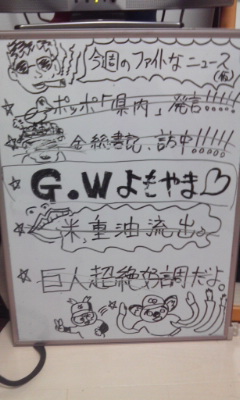 今週のファイトなニュース
☆ポッポ「県内」発言!!!!!
☆金総書記、訪中!!!!!
☆G.Wよもやま♡
☆米、重油流出。
☆巨人超絶好調だよ。